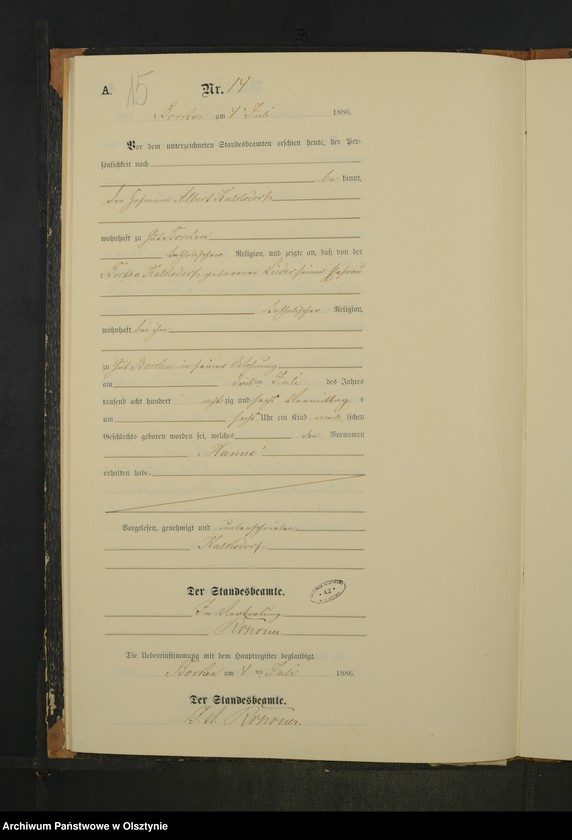 A.
15
Nr. 14
Borken am 4 Juli 1886.
Vor dem unterzeichneten Standesbeamten erschien heute, der Per-
sönlichkeit nach
be kannt,
Albert Kalksdorf
wohnhaft zu Gut Borken
katholischer Religion, und zeigte an, daß von der
Kalksdorf geborener seiner Ehefrau
katholischer Religion,
wohnhaft bei ihm
zu Gut Borken in seiner Wohnung
am dritten Juli des Jahres
tausend acht hundert acht zig und sechs Vormittag s
um sechs Uhr ein Kind weib lichen
Geschlechts geboren worden sei, welches den Vornamen
Hanne
erhalten habe.
Vorgelesen, genehmigt und unterschrieben
Kalksdorf
Der Standesbeamte.
42
In Vertretung
Die Uebereinstimmung mit dem Hauptregister beglaubigt
Borken am 4 ten Juli 1886.
Der Standesbeamte.
Archiwum Państwowe w Olsztynie